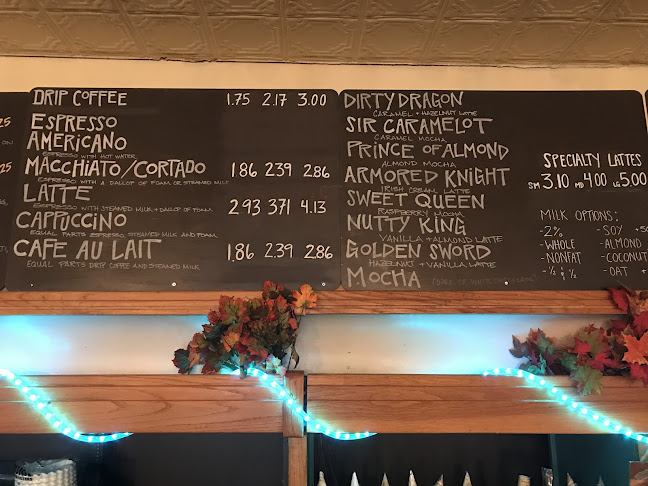 25
25
DRIP COFFEE 1.75 2.17 3.00
ESPRESSO
AMERICANO
ESPRESSO WITH HOT WATER
MACCHIATO/CORTADO 1.86 2.39 2.86
ESPRESSO WITH A DALLOP OF FOAM OR STEAMED MILK
LATTE 2.93 3.71 4.13
ESPRESSO WITH STEAMED MILK + DALLOP OF FOAM
CAPPUCCINO
EQUAL PARTS ESPRESSO STEAMED MILK AND FOAM
CAFE AU LAIT 1.86 2.39 2.86
EQUAL PARTS DRIP COFFEE AND STEAMED MILK
DIRTY DRAGON
CARAMEL + HAZELNUT LATTE
SIR CARAMELOT
CARAMEL MOCHA
PRINCE OF ALMOND
ALMOND MOCHA
ARMORED KNIGHT
IRISH CREAM LATTE
SWEET QUEEN
RASPBERRY MOCHA
NUTTY KING
VANILLA + ALMOND LATTE
GOLDEN SWORD
HAZELNUT + VANILLA LATTE
MOCHA
SPECIALTY LATTES
SM 3.10 MD 4.00 LG 5.00
MILK OPTIONS:
- 2% - SOY +50
- WHOLE - ALMOND
- NONFAT - COCONUT
- ½ & ½ - OAT +